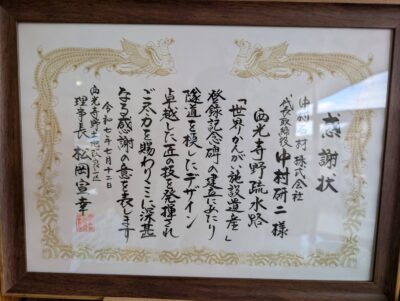 感謝状
中村石材株式会社
代表取締役 中村研二様
西光寺野疏水路
「世界かんがい施設遺産」
登録記念碑の建立にあたり
隧道を模したデザイン
卓越した匠の技を発揮され
ご尽力を賜わりここに深甚
なる感謝の意を表します
令和七年七月十二日
西光寺野土地改良区
理事長 松岡宣幸